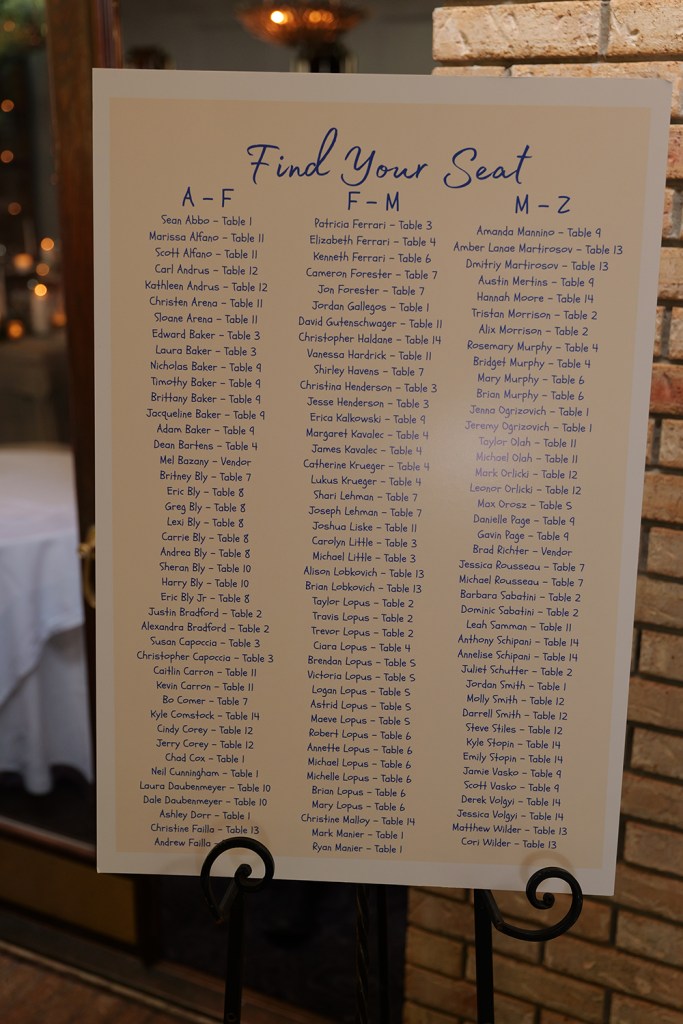 Find Your Seat
A – F
Sean Abbo – Table 1
Marissa Alfano – Table 11
Scott Alfano – Table 11
Carl Andrus – Table 12
Kathleen Andrus – Table 12
Christen Arena – Table 11
Sloane Arena – Table 11
Edward Baker – Table 3
Laura Baker – Table 3
Nicholas Baker – Table 9
Timothy Baker – Table 9
Brittany Baker – Table 9
Jacqueline Baker – Table 9
Adam Baker – Table 9
Dean Bartens – Table 4
Mel Bazany – Vendor
Britney Bly – Table 7
Eric Bly – Table 8
Greg Bly – Table 8
Lexi Bly – Table 8
Carrie Bly – Table 8
Andrea Bly – Table 8
Sheran Bly – Table 10
Harry Bly – Table 10
Eric Bly Jr – Table 8
Justin Bradford – Table 2
Alexandra Bradford – Table 2
Susan Capoccia – Table 3
Christopher Capoccia – Table 3
Caitlin Carron – Table 11
Kevin Carron – Table 11
Bo Comer – Table 7
Kyle Comstock – Table 14
Cindy Corey – Table 12
Jerry Corey – Table 12
Chad Cox – Table 1
Neil Cunningham – Table 1
Laura Daubenmeyer – Table 10
Dale Daubenmeyer – Table 10
Ashley Dorr – Table 1
Christine Failla – Table 13
Andrew Failla –
F – M
Patricia Ferrari – Table 3
Elizabeth Ferrari – Table 4
Kenneth Ferrari – Table 6
Cameron Forester – Table 7
Jon Forester – Table 7
Jordan Gallegos – Table 1
David Gutenschwager – Table 11
Christopher Haldane – Table 14
Vanessa Hardrick – Table 11
Shirley Havens – Table 7
Christina Henderson – Table 3
Jesse Henderson – Table 3
Erica Kalkowski – Table 9
Margaret Kavalec – Table 4
James Kavalec – Table 4
Catherine Krueger – Table 4
Lukus Krueger – Table 4
Shari Lehman – Table 7
Joseph Lehman – Table 7
Joshua Liske – Table 11
Carolyn Little – Table 3
Michael Little – Table 3
Alison Lobkovich – Table 13
Brian Lobkovich – Table 13
Taylor Lopus – Table 2
Travis Lopus – Table 2
Trevor Lopus – Table 2
Ciara Lopus – Table 4
Brendan Lopus – Table 5
Victoria Lopus – Table 5
Logan Lopus – Table 5
Astrid Lopus – Table 5
Maeve Lopus – Table 5
Robert Lopus – Table 6
Annette Lopus – Table 6
Michael Lopus – Table 6
Michelle Lopus – Table 6
Brian Lopus – Table 6
Mary Lopus – Table 6
Christine Malloy – Table 14
Mark Manier – Table 1
Ryan Manier – Table 1
M – Z
Amanda Mannino – Table 9
Amber Lanae Martirosov – Table 13
Dmitriy Martirosov – Table 13
Austin Mertins – Table 9
Hannah Moore – Table 14
Tristan Morrison – Table 2
Alix Morrison – Table 2
Rosemary Murphy – Table 4
Bridget Murphy – Table 4
Mary Murphy – Table 6
Brian Murphy – Table 6
Jenna Ogrizovich – Table 1
Jeremy Ogrizovich – Table 1
Taylor Olah – Table 11
Michael Olah – Table 11
Mark Orlicki – Table 12
Leonor Orlicki – Table 12
Max Orosz – Table 5
Danielle Page – Table 9
Gavin Page – Table 9
Brad Richter – Vendor
Jessica Rousseau – Table 7
Michael Rousseau – Table 7
Barbara Sabatini – Table 2
Dominic Sabatini – Table 2
Leah Samman – Table 11
Anthony Schipani – Table 14
Annelise Schipani – Table 14
Juliet Schutter – Table 2
Jordan Smith – Table 1
Molly Smith – Table 12
Darrell Smith – Table 12
Steve Stiles – Table 12
Kyle Stopin – Table 14
Emily Stopin – Table 14
Jamie Vasko – Table 9
Scott Vasko – Table 9
Derek Volgyi – Table 14
Jessica Volgyi – Table 14
Matthew Wilder – Table 13
Cori Wilder – Table 13